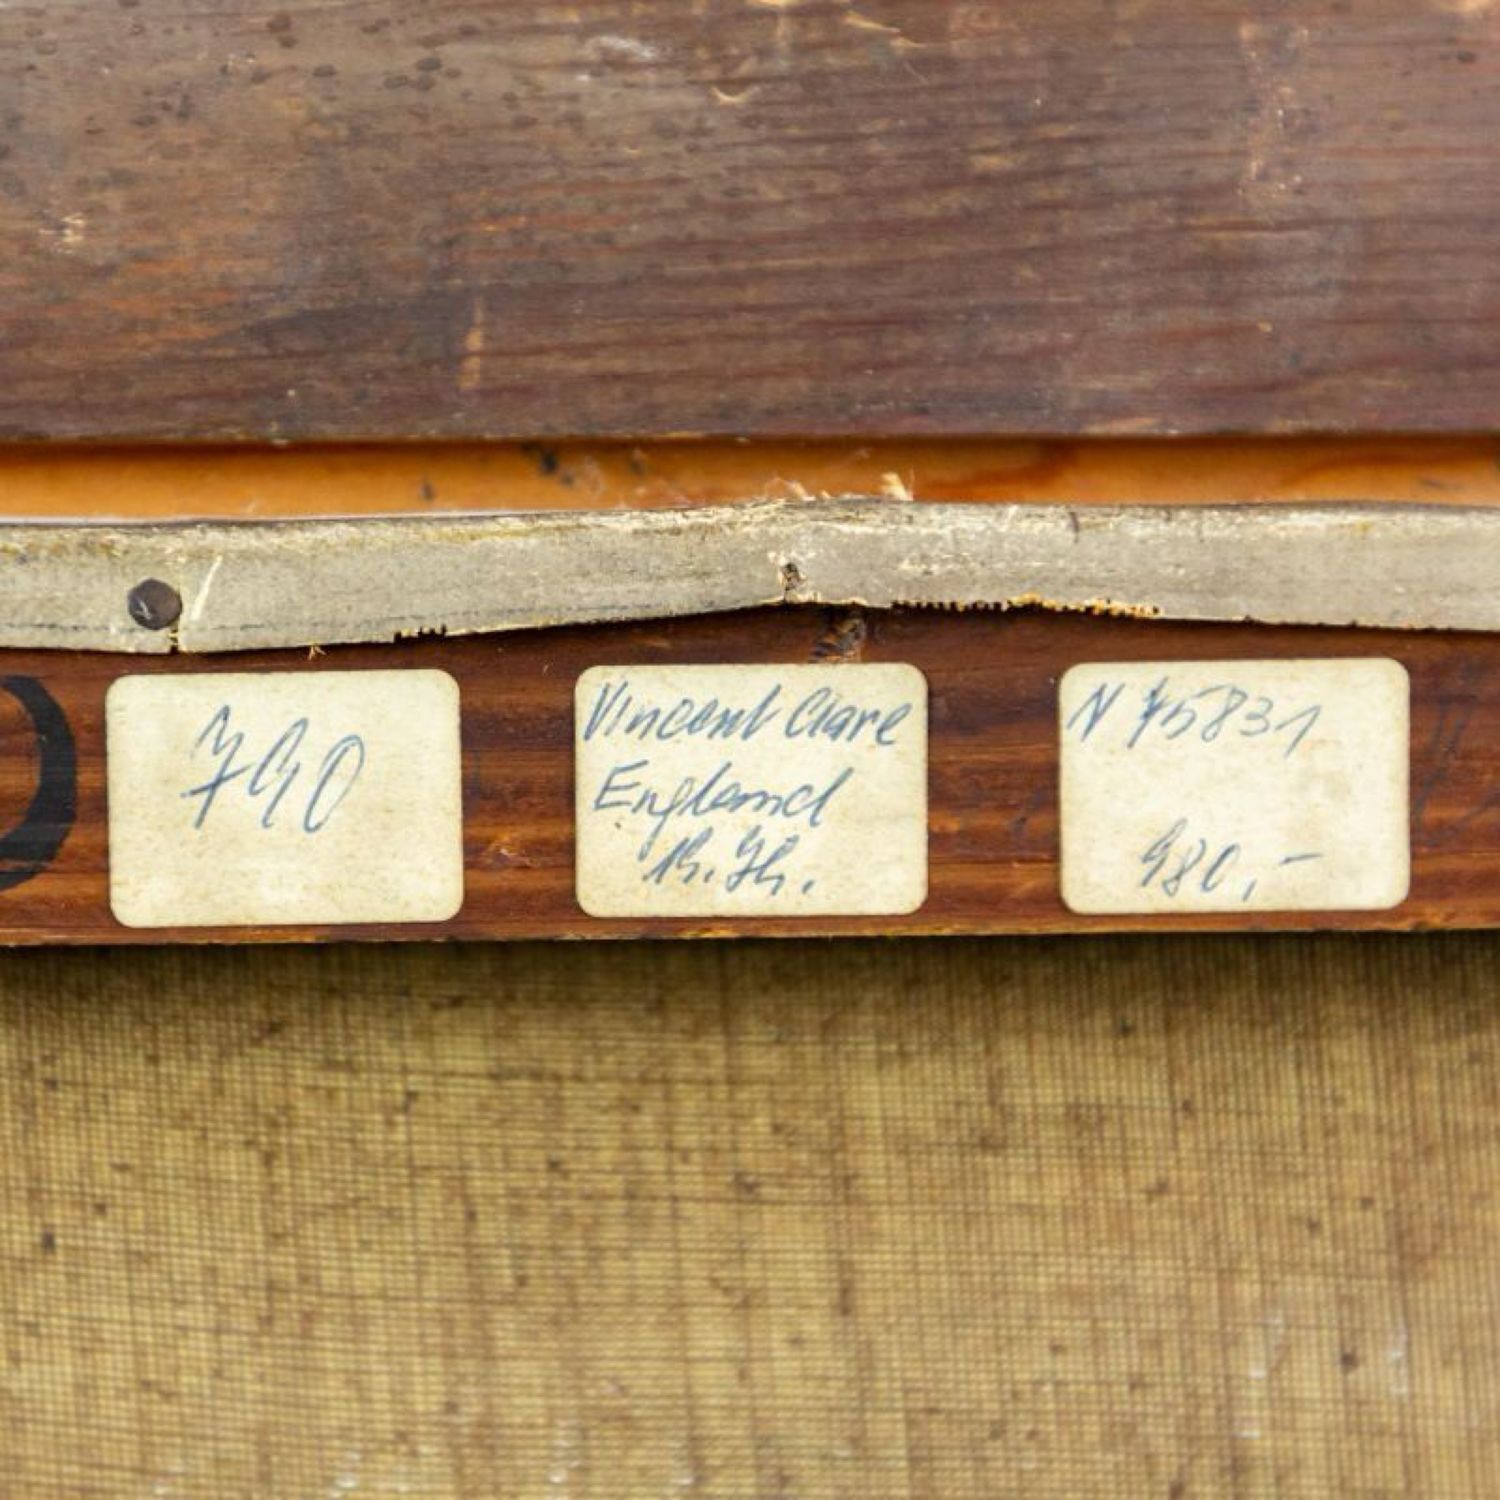 790
Vincent Clare
England
19. Jh.
N 75831
980,-